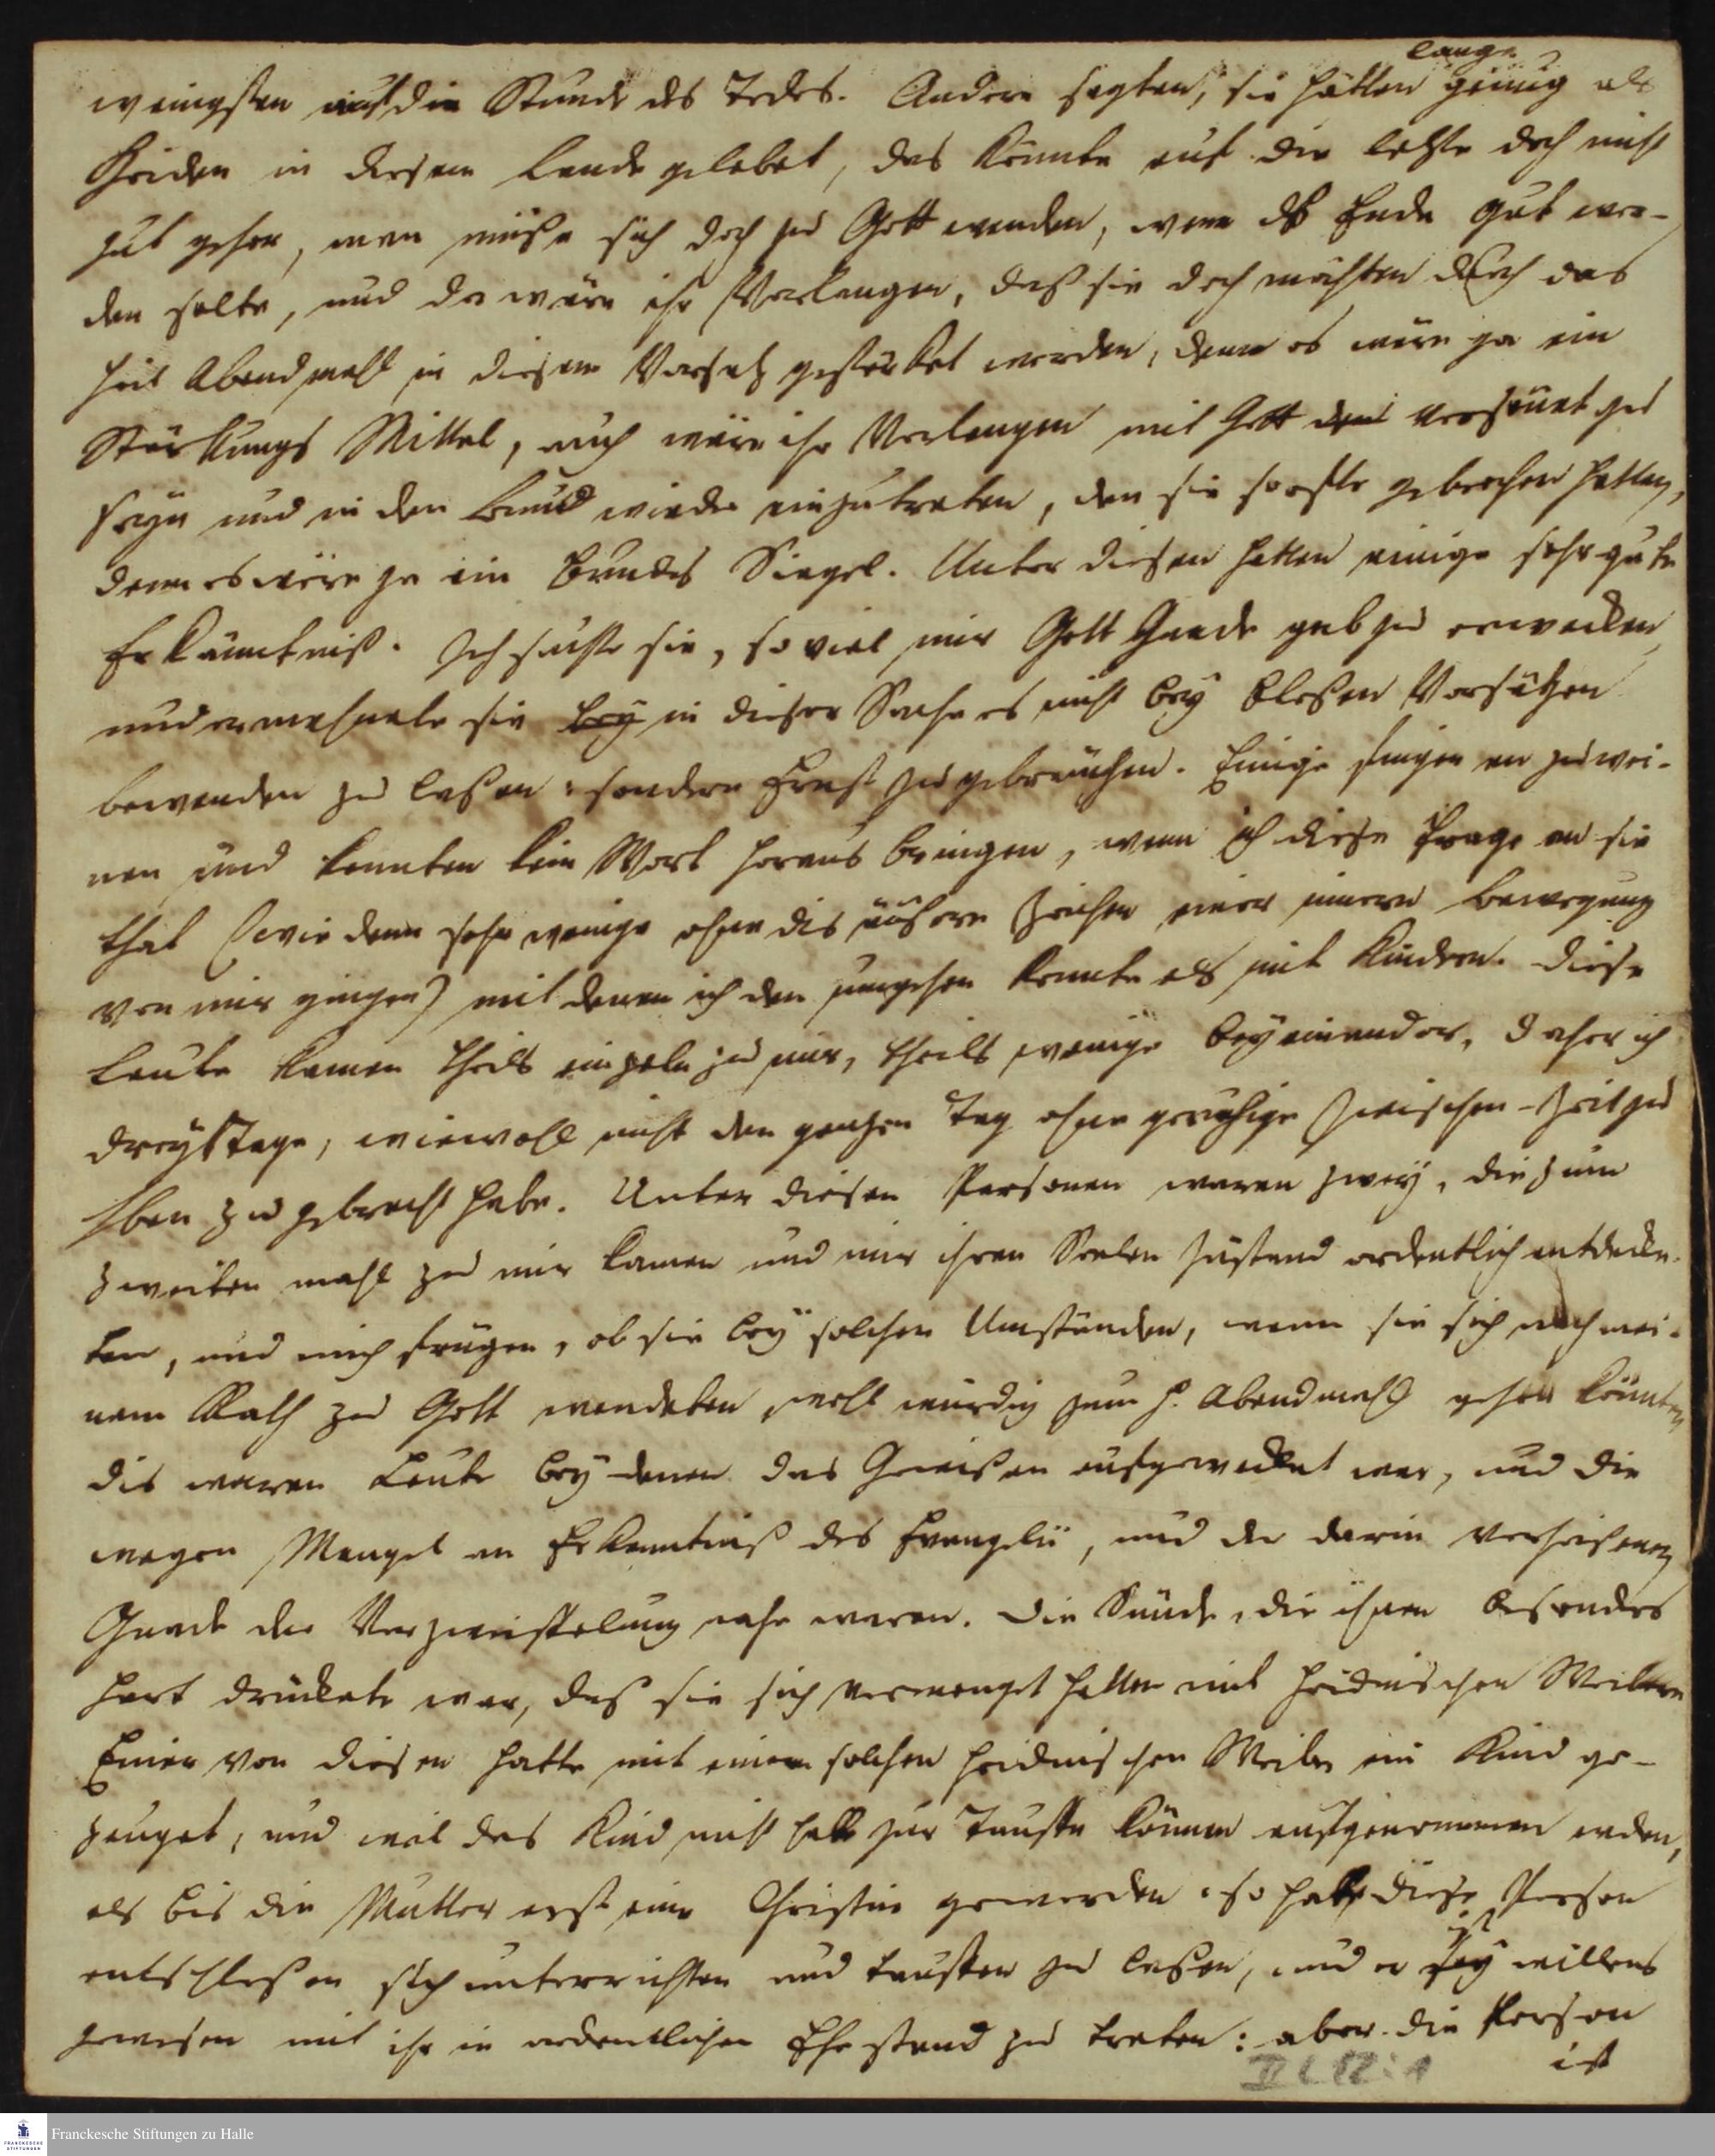 lange
wenigsten auf die Stunde des Todes. Andere sagten, sie hätten genug als
Heiden in diesem Lande gelebet, das könnte auf die letzte doch nicht
gut gehen, man müße sich doch zu Gott wenden, wenn das Ende gut wer-
den solte, und da wäre ihr Verlangen, daß sie doch möchten durch das
heil Abendmahl in diesem Vorsatz gestärket werden, denn es wäre ja ein
Stärkungs Mittel, auch wäre ihr Verlangen mit Gott versöhnet zu
seyn und in den Bund wieder einzutreten, den sie so offte gebrochen hatten,
denn es wäre ja ein Bundes Siegel. Unter diesen hatten einige sehr gute
Erkänntniß. Ich suchte sie, so viel mir Gott Gnade gab zu erwecken,
und ermahnete sie bey in dieser Sache es nicht bey bloßen Vorsätzen
bewenden zu laßen: sondern Ernst zu gebrauchen. Einige fingen an zu wei-
nen und konnten kein Wort heraus bringen, wenn ich diese Frage an sie
that (wie denn sehr wenige ohne dis äußere Zeichen einer innern Bewegung
von mir gingen) mit denen ich den umgehen konnte als mit Kindern. Diese
Leute kamen theils einzeln zu mir, theils wenige beyeinander, daher ich
drey Tage, wiewohl nicht den gantzen Tag ohne geruhige Zwischen-Zeit zu
Eben zu gebracht habe. Unter diesen Personen waren zwey, die zum
zweiten mahl zu mir kamen und mir ihren Seelen Zustand ordentlich entdeck-
ten, und mich frugen, ob sie bey solchen Umständen, wenn sie sich nach mei-
nem Rath zu Gott wendeten, wohl würdig zum h. Abendmahl gehen könnten,
dis waren Leute bey denen das Gewißen aufgewecket war, und die
wegen Mangel an Erkenntniß des Evangelii, und der darin verheißenen
Gnade der Verzweiffelung nahe waren. Die Sünde, die ihnen besonders
hart drückete war, daß sie sich vermenget hatten mit heidnischen Weibern
Einer von diesen hatte mit einem solchen heidnischen Weibe ein Kind ge-
zeuget, und weil das Kind nicht hatte zur Tauffe können aufgenommen werden,
als bis die Mutter erst eine Christin geworden, so habe diese Person
ist
entschloßen sich unterrichten und tauffen zu laßen, und er sey willens
gewesen mit ihr in ordentlichen Ehestand zu treten: aber die Person
ist
II L 12:1
Franckesche Stiftungen zu Halle